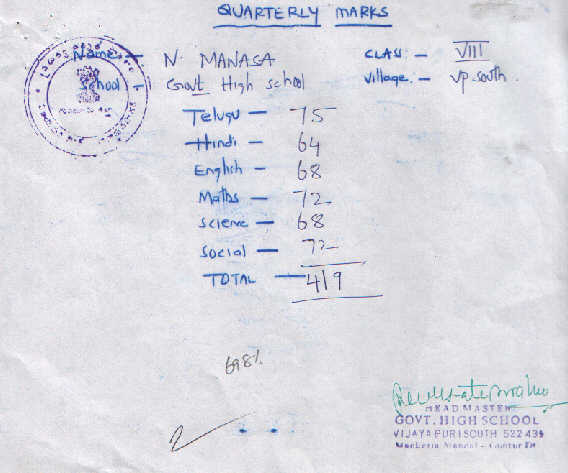 QUARTERLY MARKS
Name - N MANASA CLASS - VIII
School - Govt High school Village - VP. south.
Telugu - 75
Hindi - 64
English - 68
Maths - 72
Science - 68
Social - 72
TOTAL - 419
69.8%
HEAD MASTER
GOVT. HIGH SCHOOL
VIJAYA PURI SOUTH 522 439